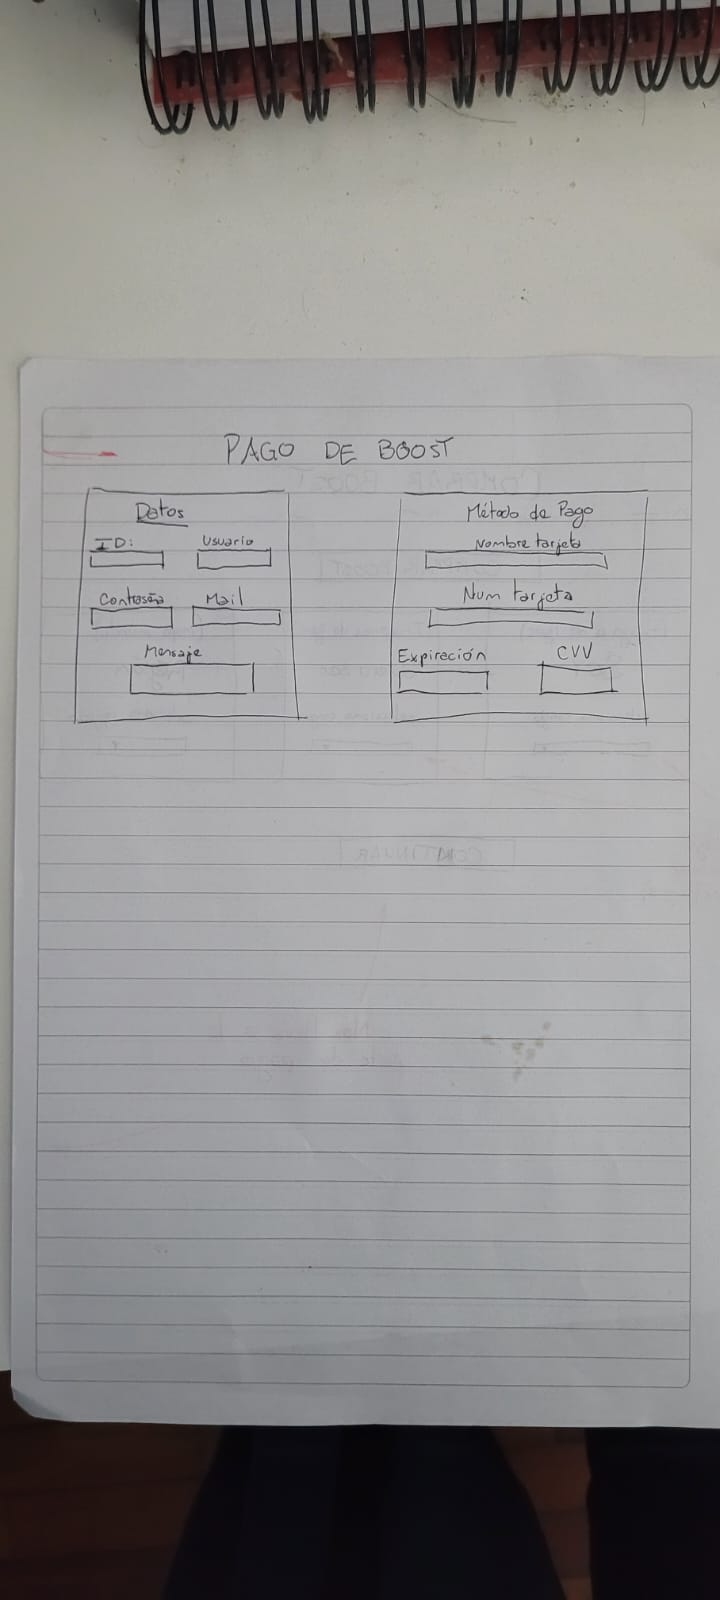 PAGO DE BOOST
Datos
ID: Usuario
Contraseña Mail
Mensaje
Método de Pago
Nombre tarjeta
Num tarjeta
Expiración CVV
CONTINUAR